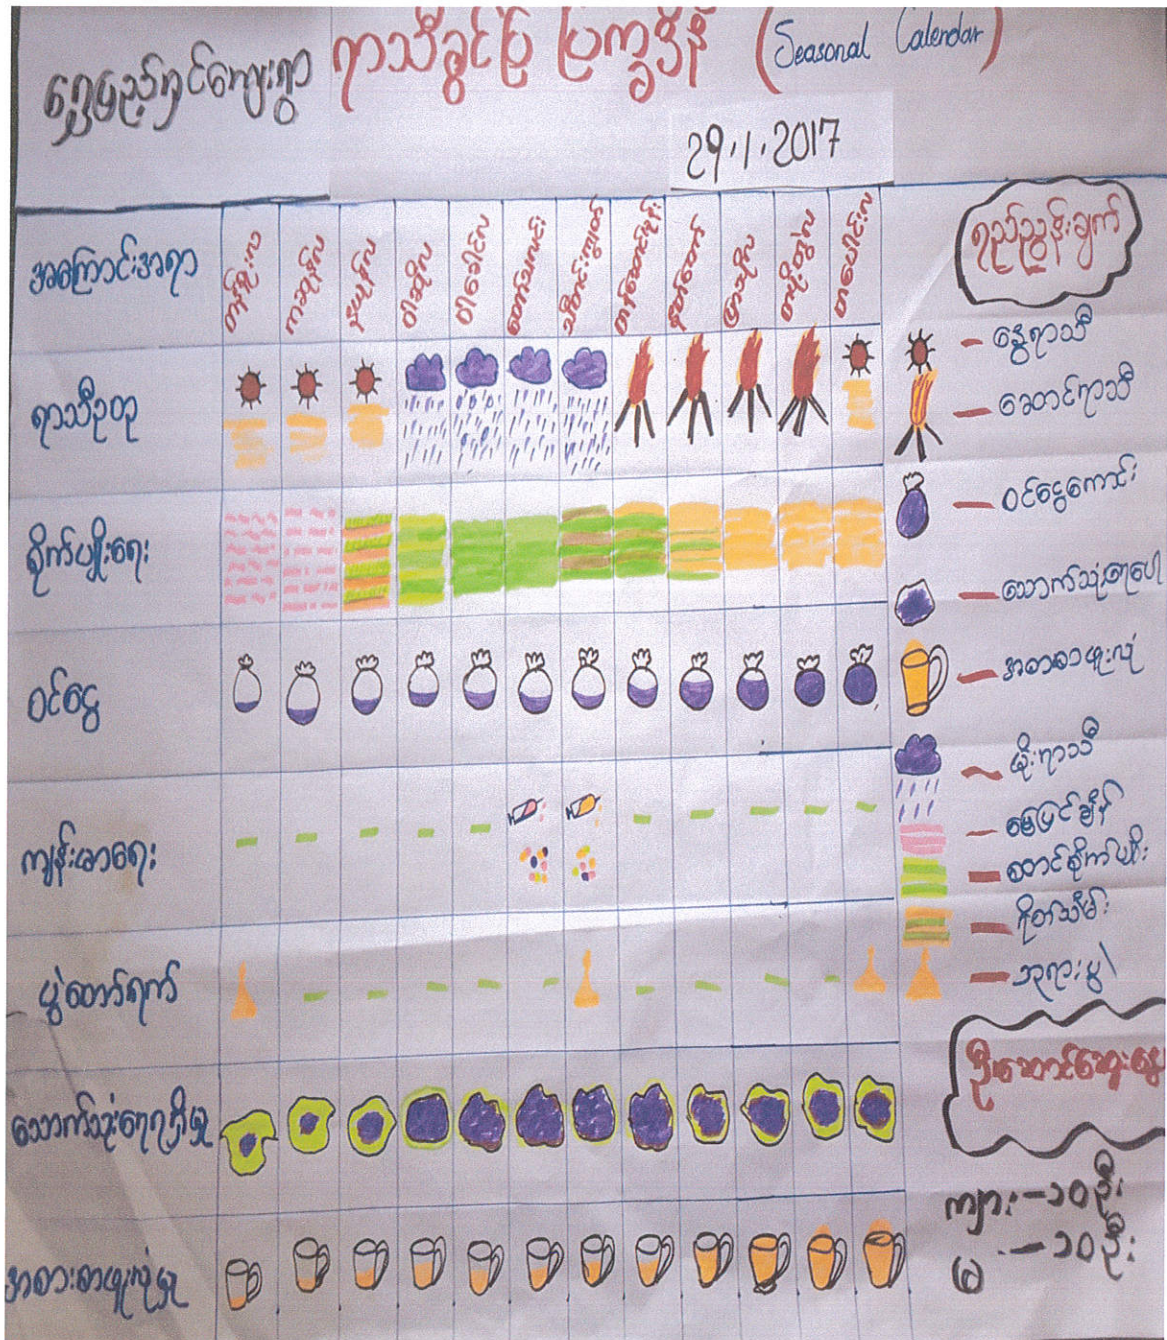 ရွှေပြည့်ရှင်ကျေးရွာ ရာသီခွင်ပြ ပြက္ခဒိန် (Seasonal Calendar)
29.1.2017
အကြောင်းအရာ
တန်ခူးလ
ကဆုန်လ
နယုန်လ
ဝါဆိုလ
ဝါခေါင်လ
တော်သလင်း
သီတင်းကျွတ်
တန်ဆောင်မုန်း
နတ်တော်လ
ပြာသိုလ
တပို့တွဲလ
တပေါင်းလ
ရာသီဥတု
စိုက်ပျိုးရေး
ဝင်ငွေ
ကျန်းမာရေး
ပွဲတော်ရက်
သောက်သုံးရေရရှိမှု
အစားစာဖူလုံမှု
ရည်ညွှန်းချက်
နွေရာသီ
ဆောင်ရာသီ
ဝင်ငွေကောင်း
သောက်သုံးရေပေါ
အစာစာဖူလုံ
မိုးရာသီ
မြေပြင်ချိန်
စတင်စိုက်ပျိုး
ရိတ်သိမ်း
ဘုရားပွဲ
ဦးဆောင်ဆွေးနွေး
ကျား - ၁၀ ဦး
မ - ၁၀ ဦး